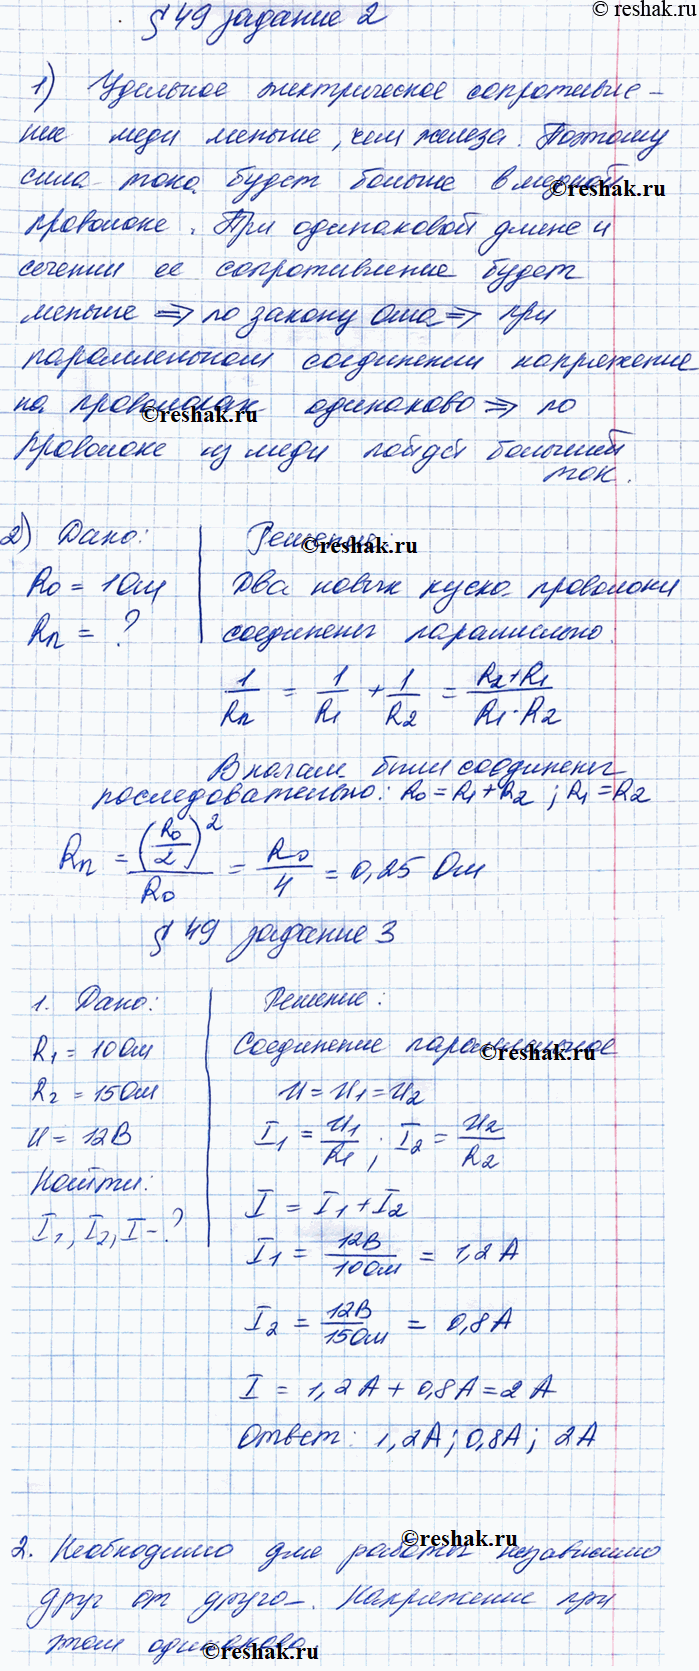 © reshak.ru
§49 задание 2
1) Удельное электрическое сопротивле-
ние меди меньше, чем железа. Поэтому
сила тока будет больше в медной
© reshak.ru
проволоке. При одинаковой длине и
сечении ее сопротивление будет
меньше ⇒ по закону Ома ⇒ при
параллельном соединении напряжение
на проволоках одинаково ⇒ по
© reshak.ru
проволоке из меди пойдёт больший
ток.
2) Дано: Решение:
© reshak.ru
R₀ = 1 Ом Два новых куска проволоки
Rп = ? соединены параллельно.
1/Rп = 1/R₁ + 1/R₂ = (R₂+R₁)/(R₁·R₂)
В начале были соединены
последовательно: R₀ = R₁ + R₂ ; R₁ = R₂
Rп = (R₀/2)²/R₀ = R₀/4 = 0,25 Ом
§49 задание 3
1. Дано: Решение:
R₁ = 10 Ом Соединение параллельное
© reshak.ru
R₂ = 15 Ом U = U₁ = U₂
U = 12 В I₁ = U₁/R₁ ; I₂ = U₂/R₂
Найти: I = I₁ + I₂
I₁, I₂, I - ? I₁ = 12В/10Ом = 1,2 А
I₂ = 12В/15Ом = 0,8 А
I = 1,2 А + 0,8 А = 2 А
Ответ: 1,2 А; 0,8 А; 2 А
© reshak.ru
2. Необходимо для работы независимо
друг от друга. Напряжение при
этом одинаково
© reshak.ru